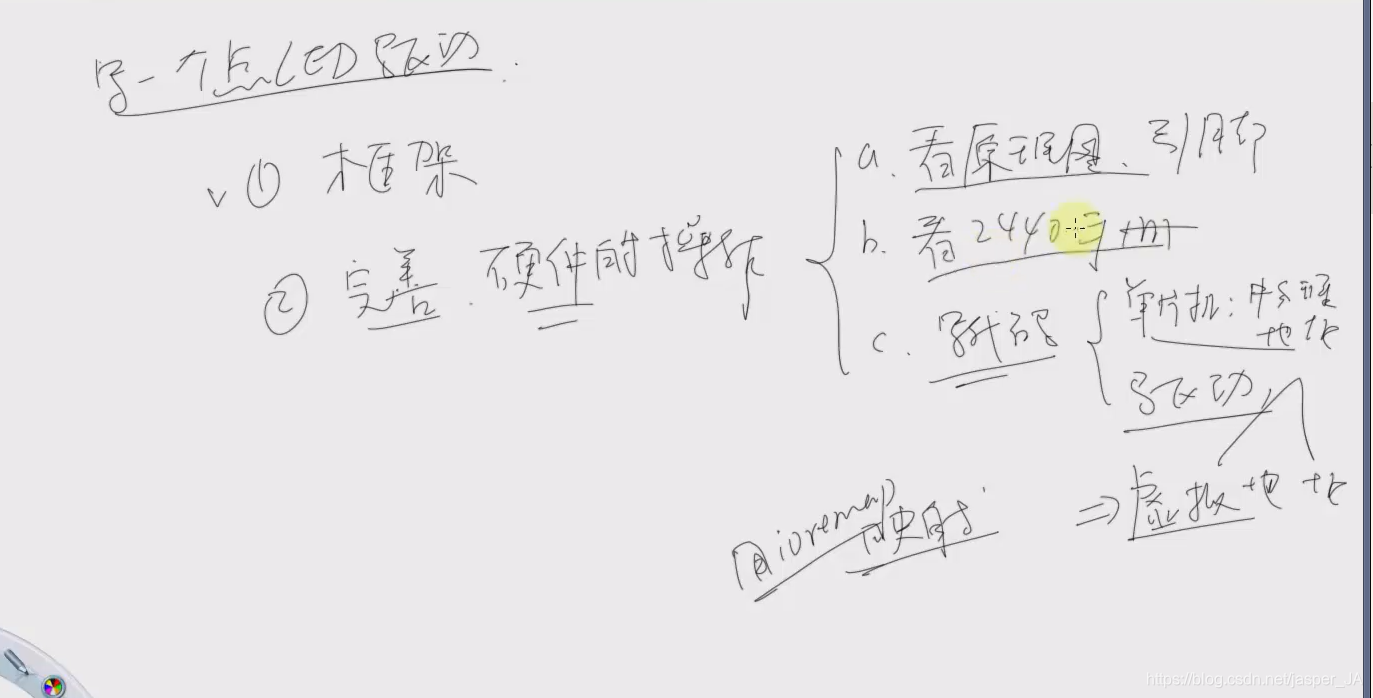 写一个点LED驱动.
√① 框架
② 完善.硬件的操作
a. 看原理图、引脚
b. 看2440手册
c. 写代码
单片机:物理
地址
驱动
⇒虚拟地址
用ioremap映射
https://blog.csdn.net/jasper_JA